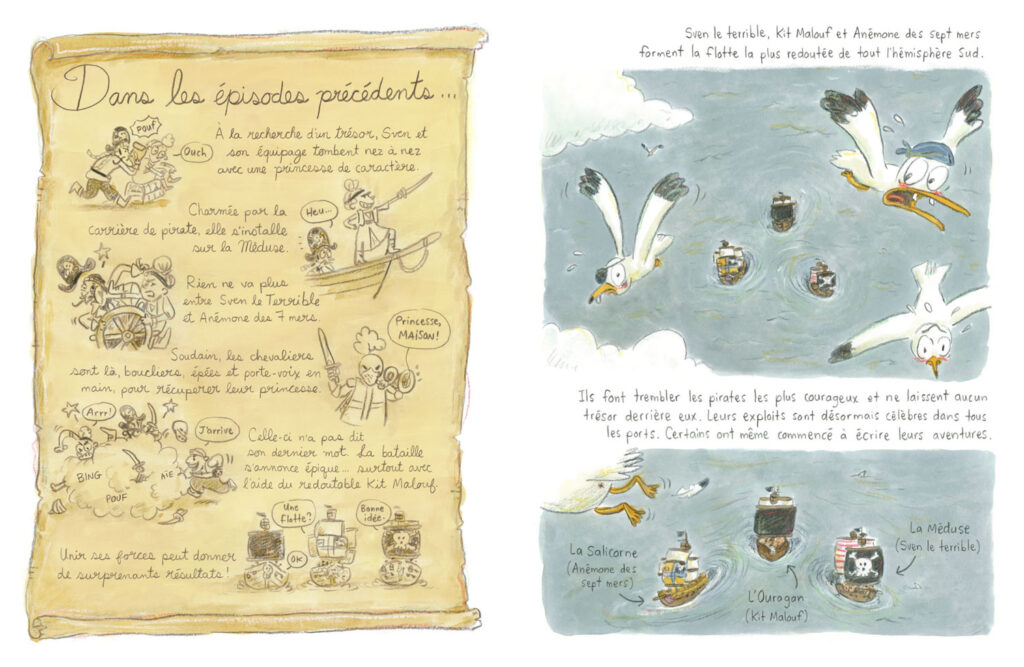 Dans les épisodes précédents...
POUF
Ouch
À la recherche d'un trésor, Sven et
son équipage tombent nez à nez
avec une princesse de caractère.
Charmée par la
carrière de pirate, elle s'installe
sur la Méduse.
Heu...
Rien ne va plus
entre Sven le Terrible
et Anémone des 7 mers.
Princesse,
MAISON!
Soudain, les chevaliers
sont là, boucliers, épées et porte-voix en
main, pour récupérer leur princesse.
Arrr!
J'arrive
BING
AIE
POUF
Celle-ci n'a pas dit
son dernier mot. La bataille
s'annonce épique... surtout avec
l'aide du redoutable Kit Malouf.
Une
flotte?
Bonne
idée.
OK
Unir ses forces peut donner
de surprenants résultats!
Sven le terrible, Kit Malouf et Anémone des sept mers
forment la flotte la plus redoutée de tout l'hémisphère Sud.
Ils font trembler les pirates les plus courageux et ne laissent aucun
trésor derrière eux. Leurs exploits sont désormais célèbres dans tous
les ports. Certains ont même commencé à écrire leurs aventures.
La Salicorne
(Anémone des
sept mers)
L'Ouragan
(Kit Malouf)
La Méduse
(Sven le terrible)